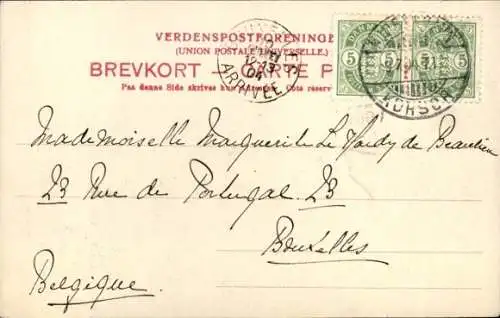 VERDENSPOSTFORENINGE
(UNION POSTALE UNIVERSELLE.)
BREVKORT — CARTE P
Paa denne Side skrives kun Adressen. Côté réserv
ARRIVÉE
04
5 5
Mademoiselle Marguerite Le Hardy de Beaulieu
23 Rue de Portugal 23
Bruxelles
Belgique.